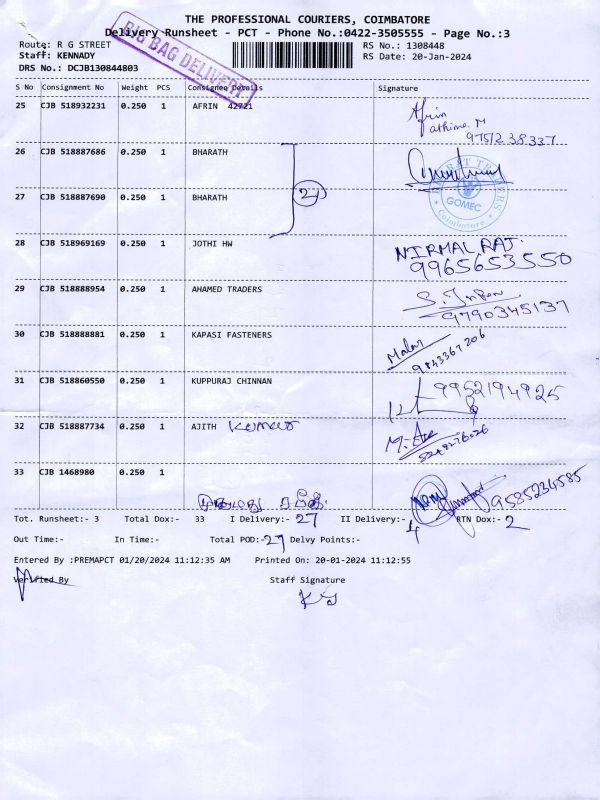 THE PROFESSIONAL COURIERS, COIMBATORE
Delivery Runsheet - PCT - Phone No.:0422-3505555 - Page No.:3
BIG BAG DELIVERY
Route: R G STREET RS No.: 1308448
Staff: KENNADY RS Date: 20-Jan-2024
DRS No.: DCJB130844803
S No Consignment No Weight PCS Consignee Details Signature
25 CJB 518932231 0.250 1 AFRIN 42721 Afrin
athima M
9751238337
26 CJB 518887686 0.250 1 BHARATH
27 CJB 518887690 0.250 1 BHARATH
BHARAT TRADERS
GOMEC
Coimbatore
28 CJB 518969169 0.250 1 JOTHI HW NIRMAL RAJ.
9965653550
29 CJB 518888954 0.250 1 AHAMED TRADERS
9790345137
30 CJB 518888881 0.250 1 KAPASI FASTENERS Malar
9843367206
31 CJB 518860550 0.250 1 KUPPURAJ CHINNAN 9952194925
32 CJB 518887734 0.250 1 AJITH Kumar
33 CJB 1468980 0.250 1
9585234585
Tot. Runsheet:- 3 Total Dox:- 33 I Delivery:- 27 II Delivery:- 4 RTN Dox:- 2
Out Time:- In Time:- Total POD:-27 Delvy Points:-
Entered By :PREMAPCT 01/20/2024 11:12:35 AM Printed On: 20-01-2024 11:12:55
Verified By Staff Signature